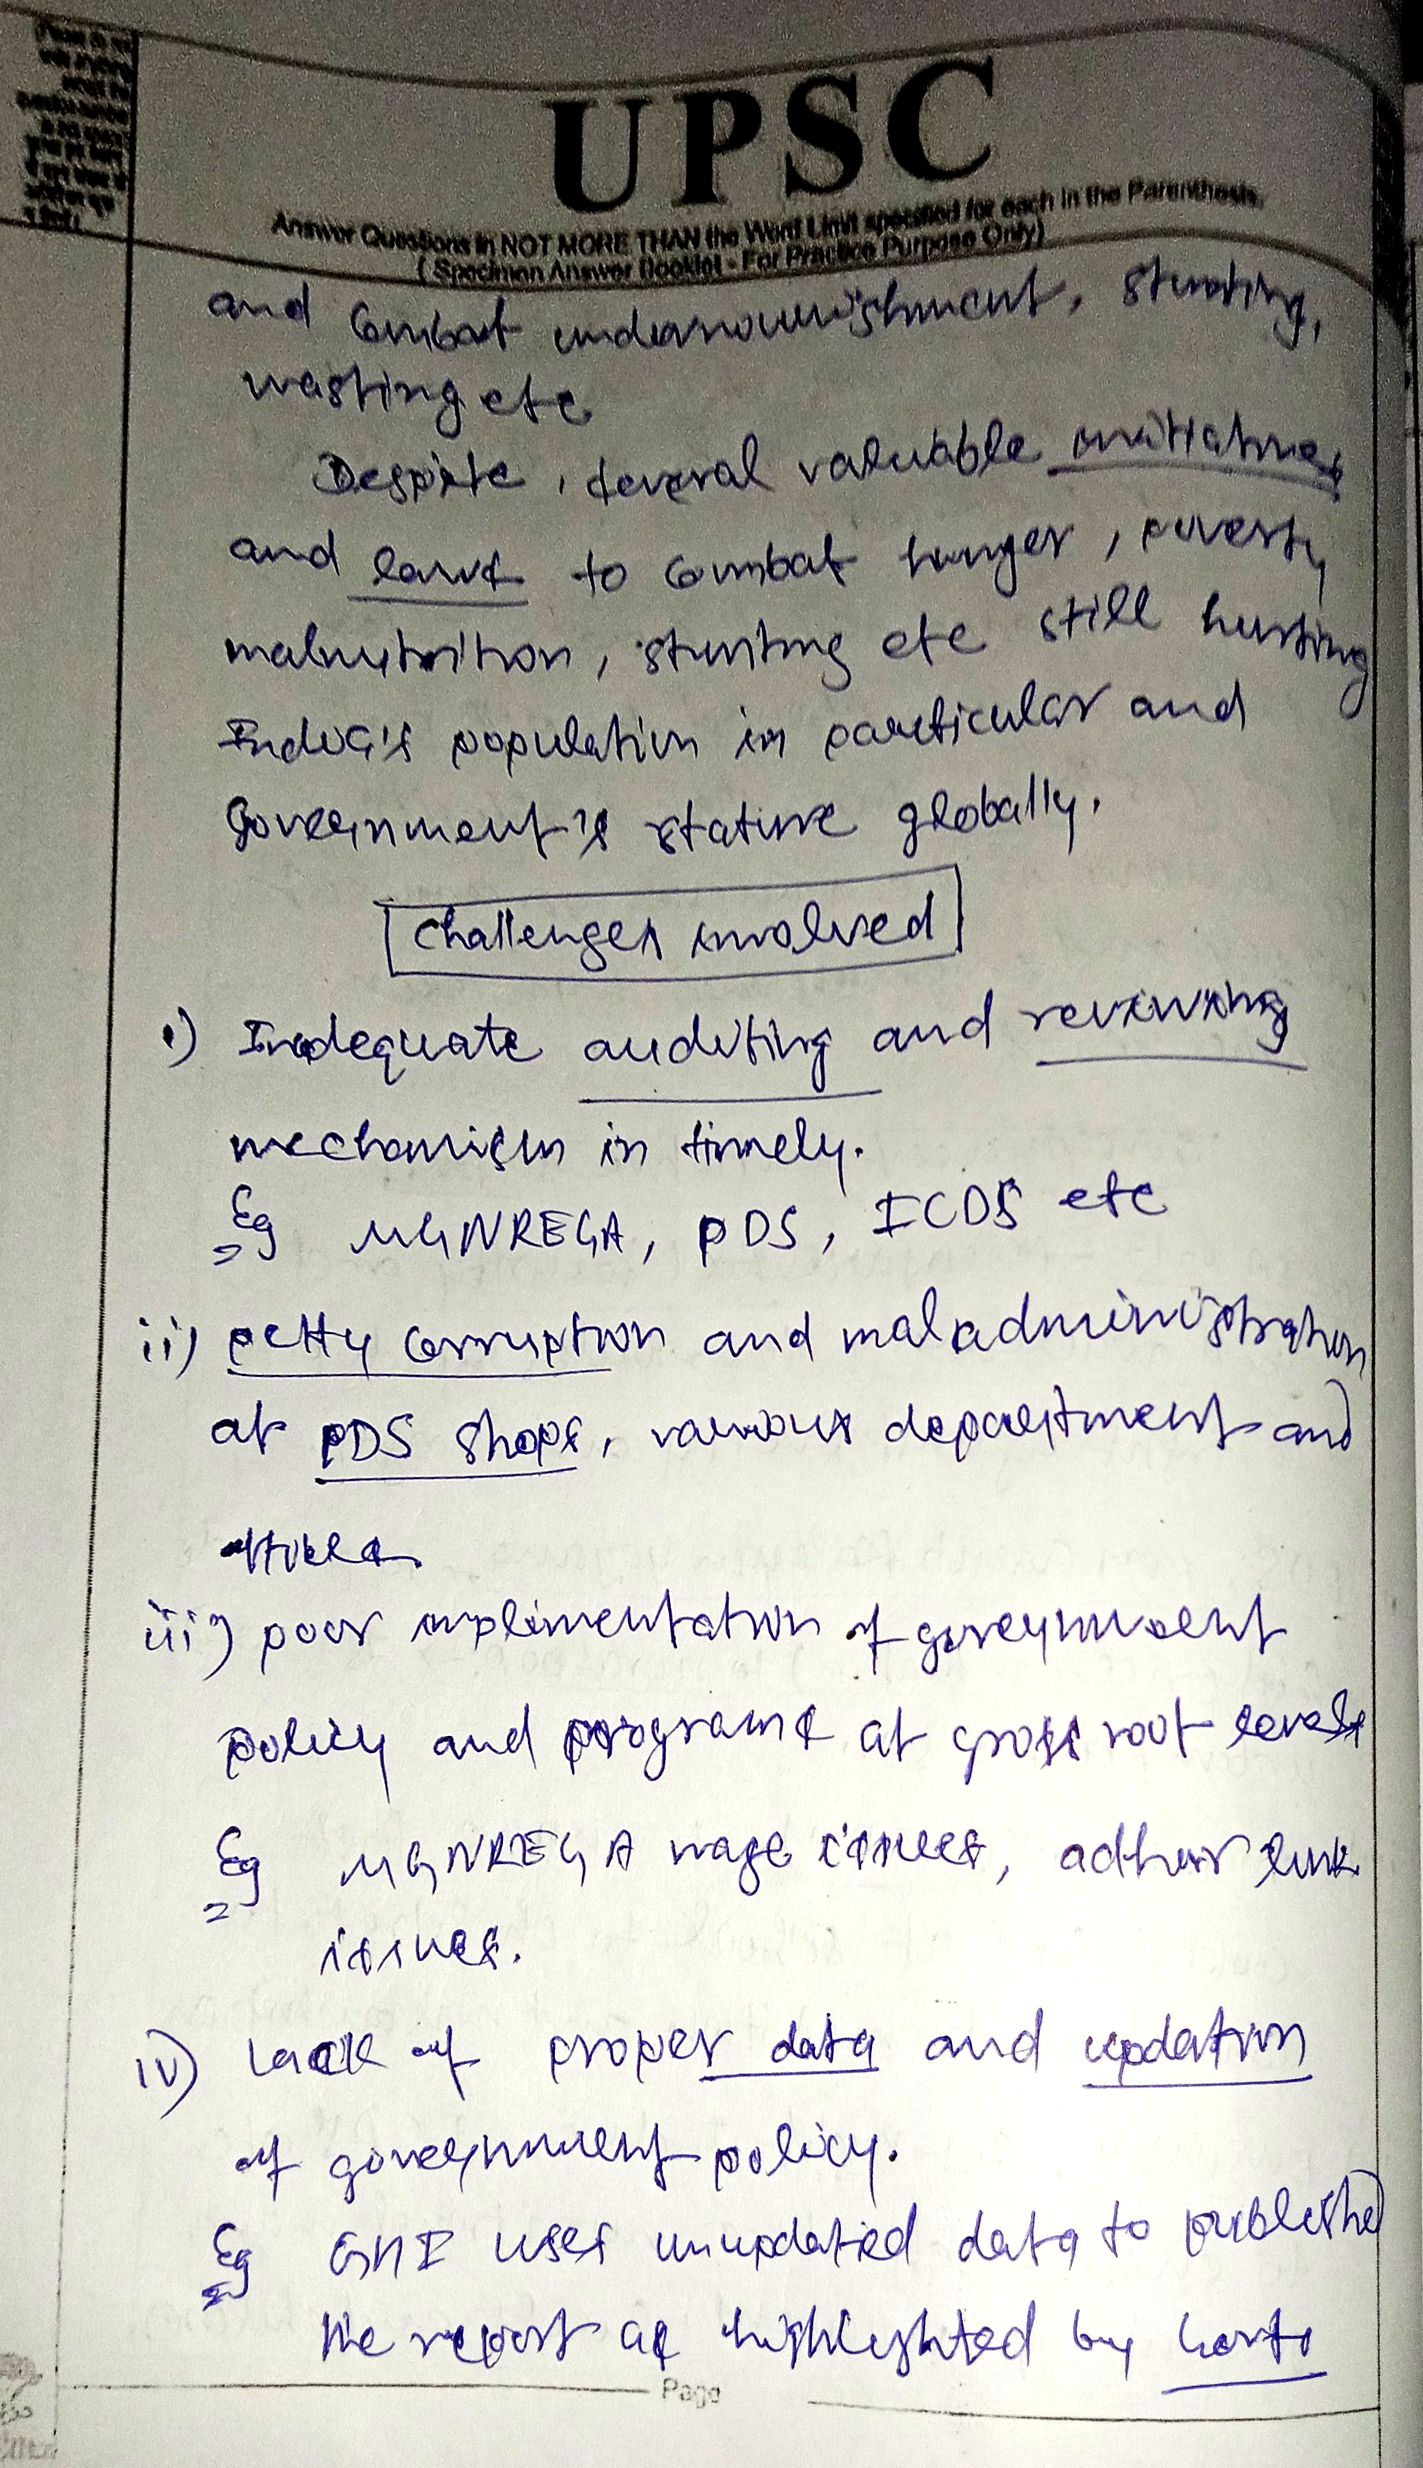 UPSC
Answer Questions in NOT MORE THAN the Word Limit specified for each in the Parenthesis.
( Specimen Answer Booklet - For Practice Purpose Only)
and combat undernourishment, stunting,
wasting etc
Despite, several valuable initiatives
and laws to combat hunger, poverty
malnutrition, stunting etc still hurting
India's population in particular and
Government's stature globally.
Challenges involved
i) Inadequate auditing and reviewing
mechanism in timely.
Eg MGNREGA, PDS, ICDS etc
ii) petty corruption and maladministration
at PDS shops, various department and
offices.
iii) poor implimentation of government
policy and programs at grass root levels
Eg MGNREGA wage issues, adhar link
issues.
iv) Lack of proper data and updation
of government policy.
Eg GHI uses unupdated data to published
the report as highlighted by
Page